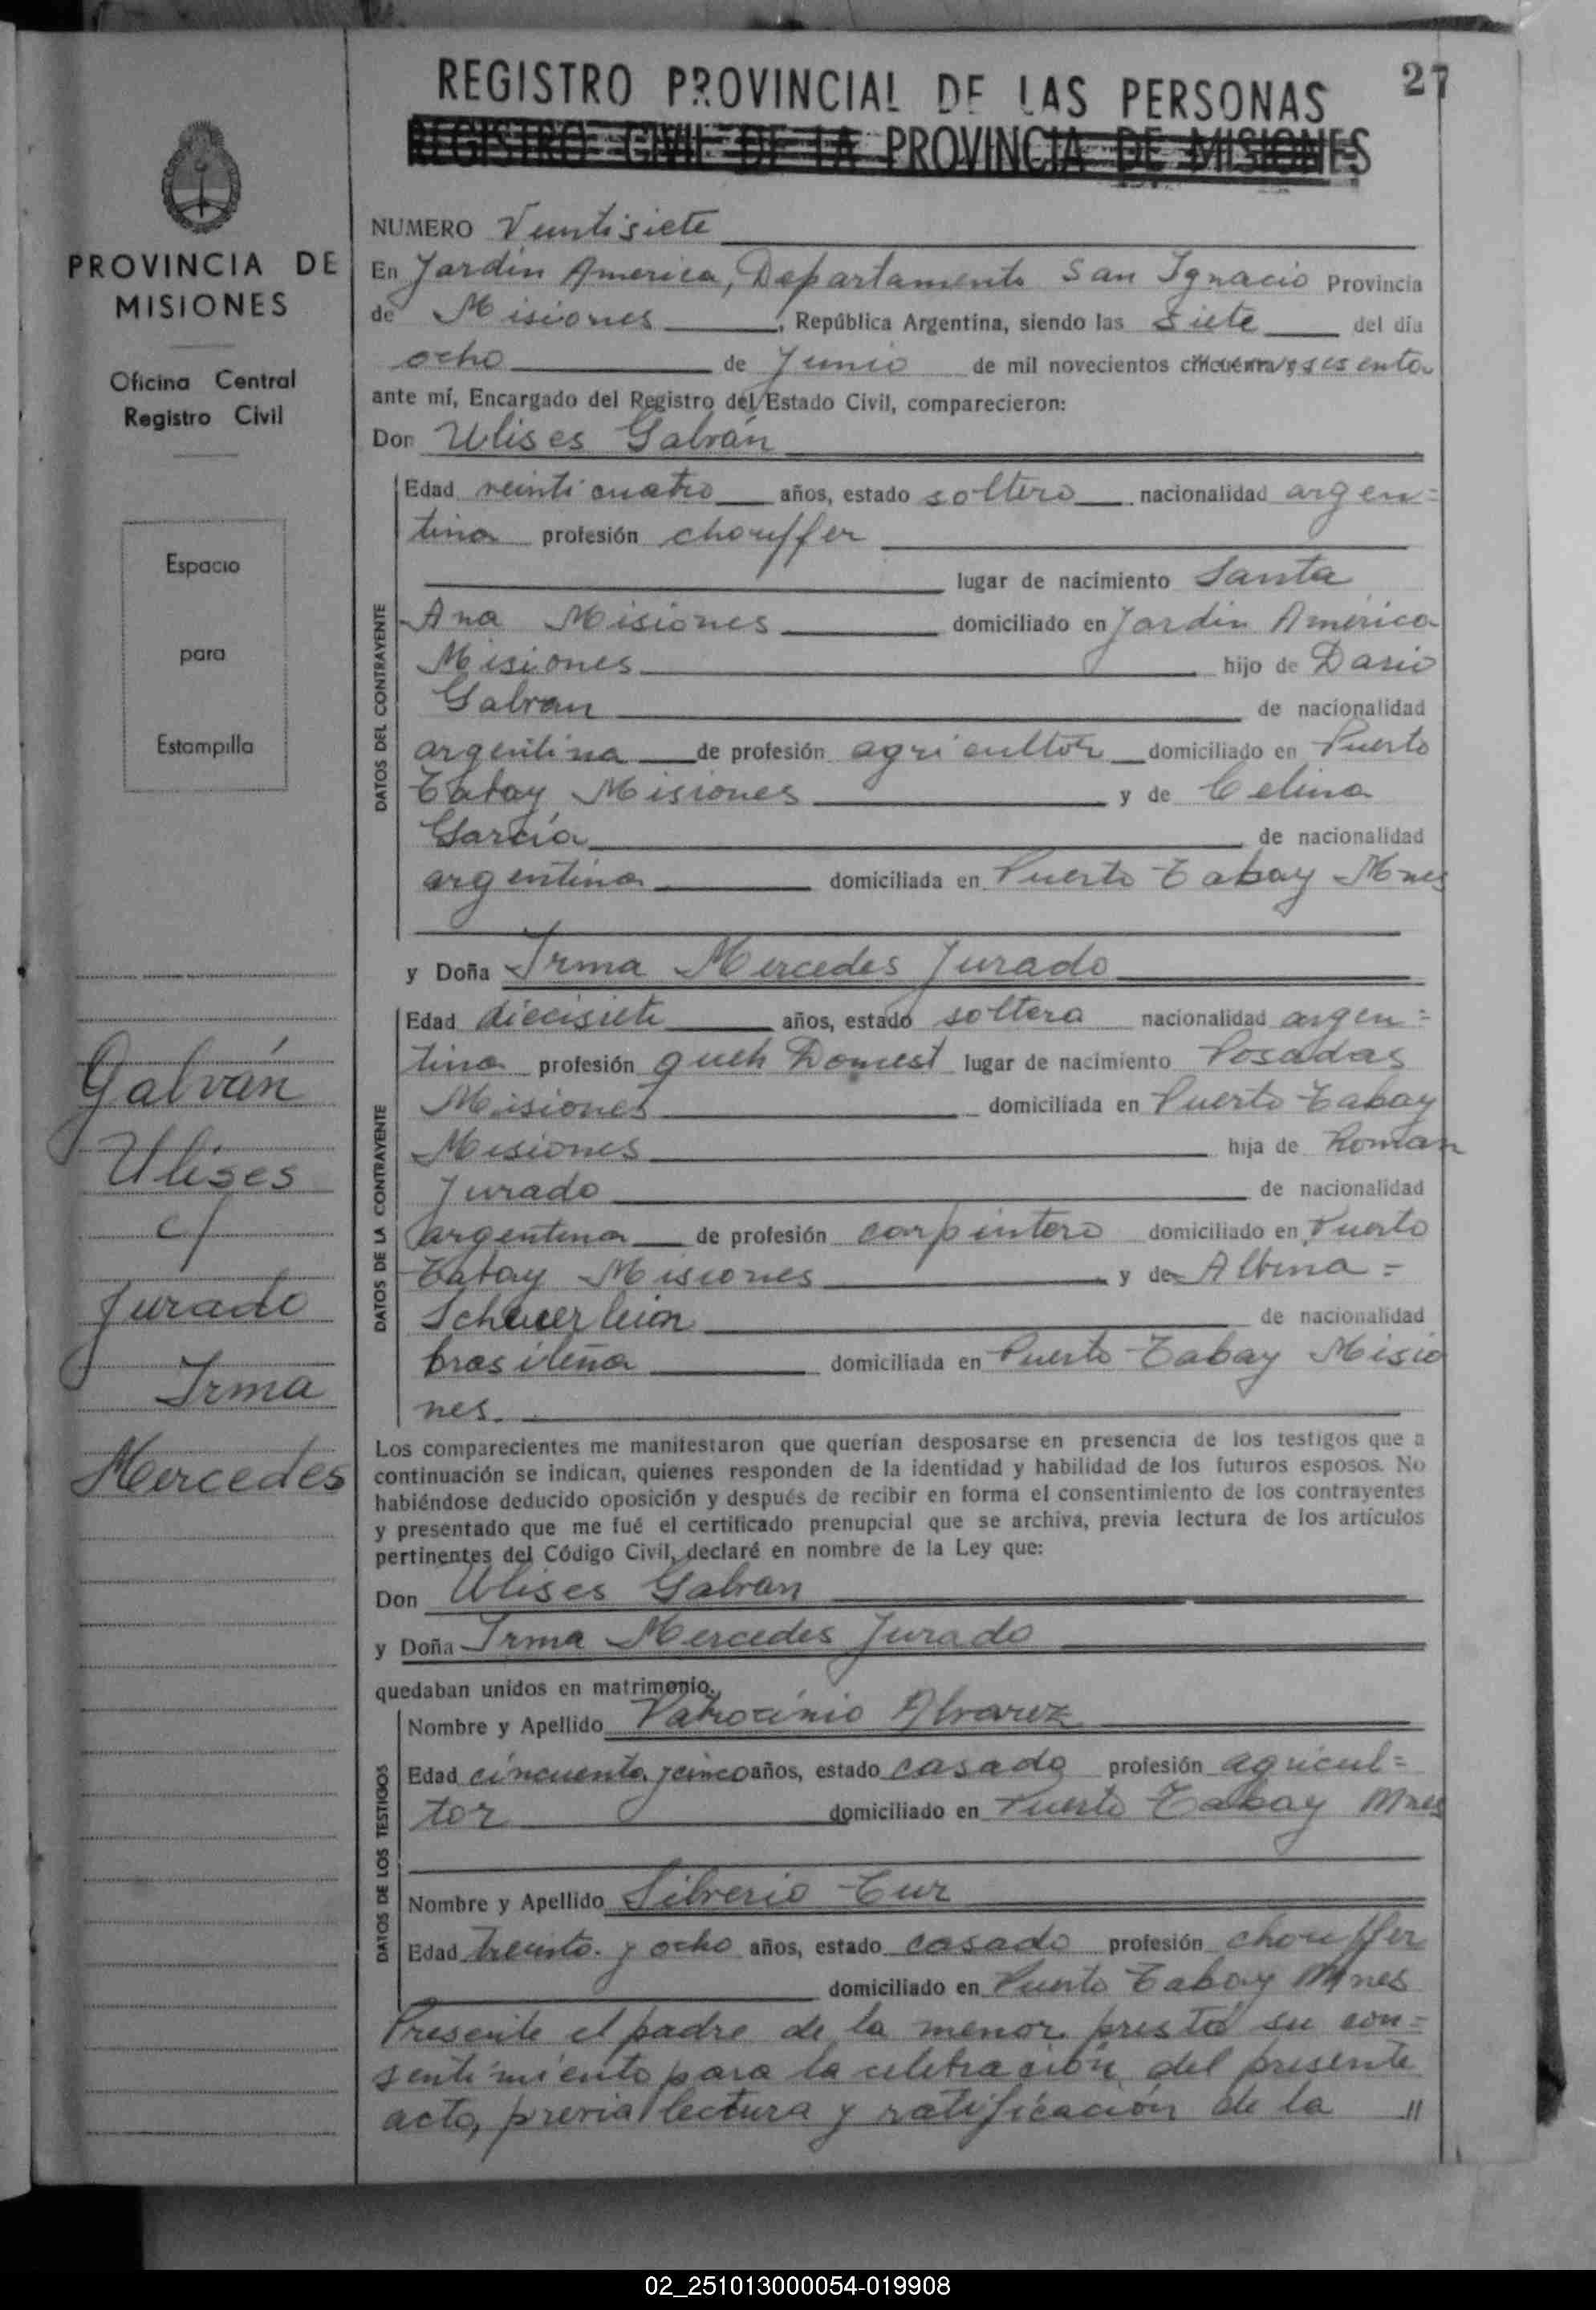 REGISTRO PROVINCIAL DE LAS PERSONAS
27
REGISTRO CIVIL DE LA PROVINCIA DE MISIONES
PROVINCIA DE
MISIONES
Oficina Central
Registro Civil
Espacio
para
Estampilla
Galván
Ulises
c/
Jurado
Irma
Mercedes
NUMERO Veintisiete
En Jardín America, Departamento San Ignacio Provincia
de Misiones, República Argentina, siendo las siete del día
ocho de Junio de mil novecientos cincuenta y sesenta
ante mí, Encargado del Registro del Estado Civil, comparecieron:
Don Ulises Galván
DATOS DEL CONTRAYENTE
Edad veinticuatro años, estado soltero nacionalidad argen=
tina profesión chouffer
lugar de nacimiento Santa
Ana Misiones domiciliado en Jardin América
Misiones hijo de Dario
Galvan de nacionalidad
argentina de profesión agricultor domiciliado en Puerto
Tabay Misiones y de Celina
García de nacionalidad
argentina domiciliada en Puerto Tabay Mnes
y Doña Irma Mercedes Jurado
DATOS DE LA CONTRAYENTE
Edad diecisiete años, estado soltera nacionalidad argen=
tina profesión Domest lugar de nacimiento Posadas
Misiones domiciliada en Puerto Tabay
Misiones hija de Roman
Jurado de nacionalidad
argentina de profesión carpintero domiciliado en Puerto
Tabay Misiones y de Albina =
de nacionalidad
brasileña domiciliada en Puerto Tabay Misio
nes.
Los comparecientes me manifestaron que querían desposarse en presencia de los testigos que a
continuación se indican, quienes responden de la identidad y habilidad de los futuros esposos. No
habiéndose deducido oposición y después de recibir en forma el consentimiento de los contrayentes
y presentado que me fué el certificado prenupcial que se archiva, previa lectura de los artículos
pertinentes del Código Civil, declaré en nombre de la Ley que:
Don Ulises Galvan
y Doña Irma Mercedes Jurado
quedaban unidos en matrimonio.
DATOS DE LOS TESTIGOS
Nombre y Apellido Patrocinio Alvarez
Edad cincuenta y cinco años, estado casado profesión agricul=
tor domiciliado en Puerto Tabay Mnes
Nombre y Apellido Silverio Tur
Edad treinta y ocho años, estado casado profesión chouffer
domiciliado en Puerto Tabay Mnes
Presente el padre de la menor prestó su con=
sentimiento para la celebración del presente
acto, previa lectura y ratificación de la //
02_251013000054-019908